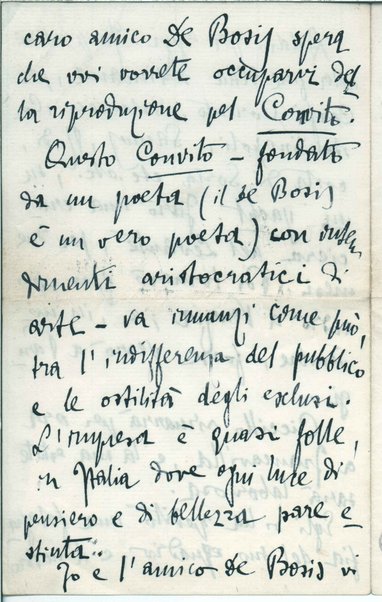 caro amico De Bosis spera
che voi vorrete occuparvi del
la riproduzione pel Convito.
Questo Convito – fondato
da un poeta (il de Bosis
è un vero poeta) con inten
dimenti aristocratici di
arte – va innanzi come può,
tra l'indifferenza del pubblico
e le ostilità degli esclusi.
L'impresa è quasi folle,
in Italia dove ogni luce di
pensiero e di bellezza pare e-
stinta.
Io e l'amico de Bosis vi